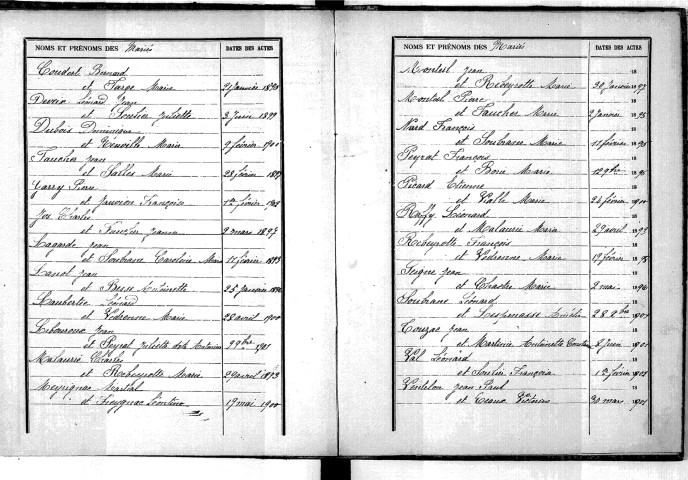 NOMS ET PRÉNOMS DES Mariés DATES DES ACTES
Couderl Bernard
et Farge Marie 21 Janvier 1898
Léonard Jean
et Soulier Juliette 3 Juin 1899
Dubois Dominique
et Neuville Marie 9 février 1900
Faucher Jean
et Salles Marie 28 février 1897
Garry Pierre
et Janvion Françoise 1er février 1908
Joz Charles
et Faucher Jeanne 2 mars 1897
Lagarde Jean
et Soubrane Caroline Marie 11 février 1893
Lanot Jean
et Besse Antoinette 25 Janvier
Laubertie Léonard
et Védrenne Marie 28 avril 1900
Jean
et Peyrat Juliette dite 1901
Malaurie Charles
et Rebeyrotte Marie 29 avril 1893
Meyrignac Martial
et Freygnac Léontine 19 mai 1900
NOMS ET PRÉNOMS DES Mariés DATES DES ACTES
Monteil Jean 18
et Rebeyrotte Marie 30 Janvier 1897
Monteil Pierre 18
et Faucher Marie 2 Janvier 1895
Nard François 18
et Soubrane Marie 11 février 1895
Peyrat François 18
et Marie 12 9bre 1895
Picard Etienne 18
et Valle Marie 24 février 1900
Raffy Léonard 18
et Malaurie Marie 29 avril 1893
Rebeyrotte François 18
et Védrenne Marie 19 février 1895
Seguy Jean 18
et Chastre Marie 2 mai 1896
Soubrane Léonard 18
et Lespinasse 28 9bre 1901
Touzac Jean 18
et Martinie Antoinette 8 Juin 1901
Val Léonard 18
et Soulier Françoise 1er février 1901
Ventelon Jean Paul 18
et Victorine 30 mars 1901